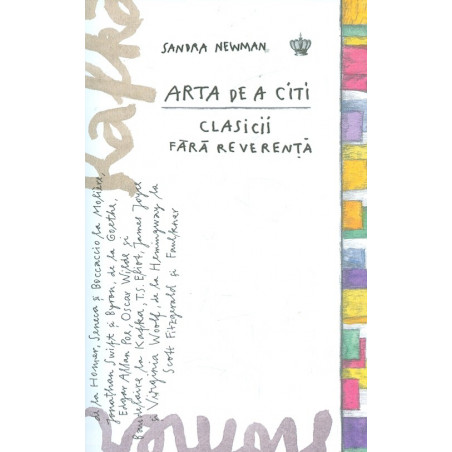 SANDRA NEWMAN
ARTA DE A CITI
CLASICII
FĂRĂ REVERENȚĂ
de la Homer, Seneca și Boccaccio la Molière,
Jonathan Swift și Byron, de la Goethe,
Edgar Allan Poe, Oscar Wilde și
Baudelaire la Kafka, T.S. Eliot, James Joyce
și Virginia Woolf, de la Hemingway la
Scott Fitzgerald și Faulkner
Kafka